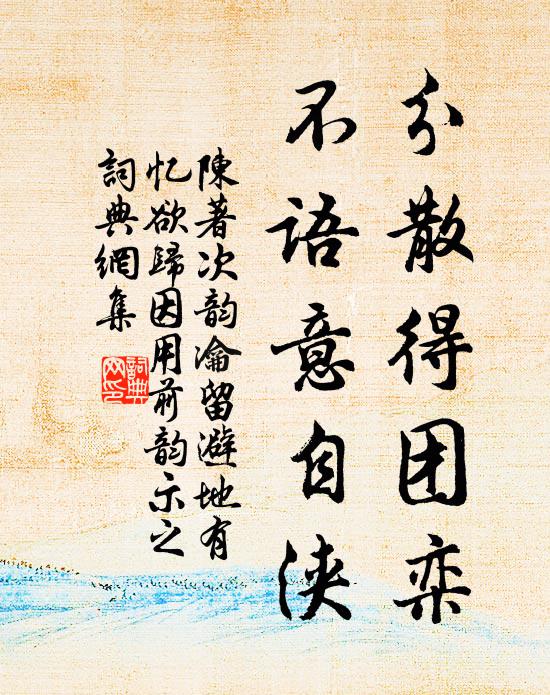 分散得团栾
不语意自浃
陳著次韵瀹留避地有
忆欲歸因用前韵示之
詞典網集
詞典
网印